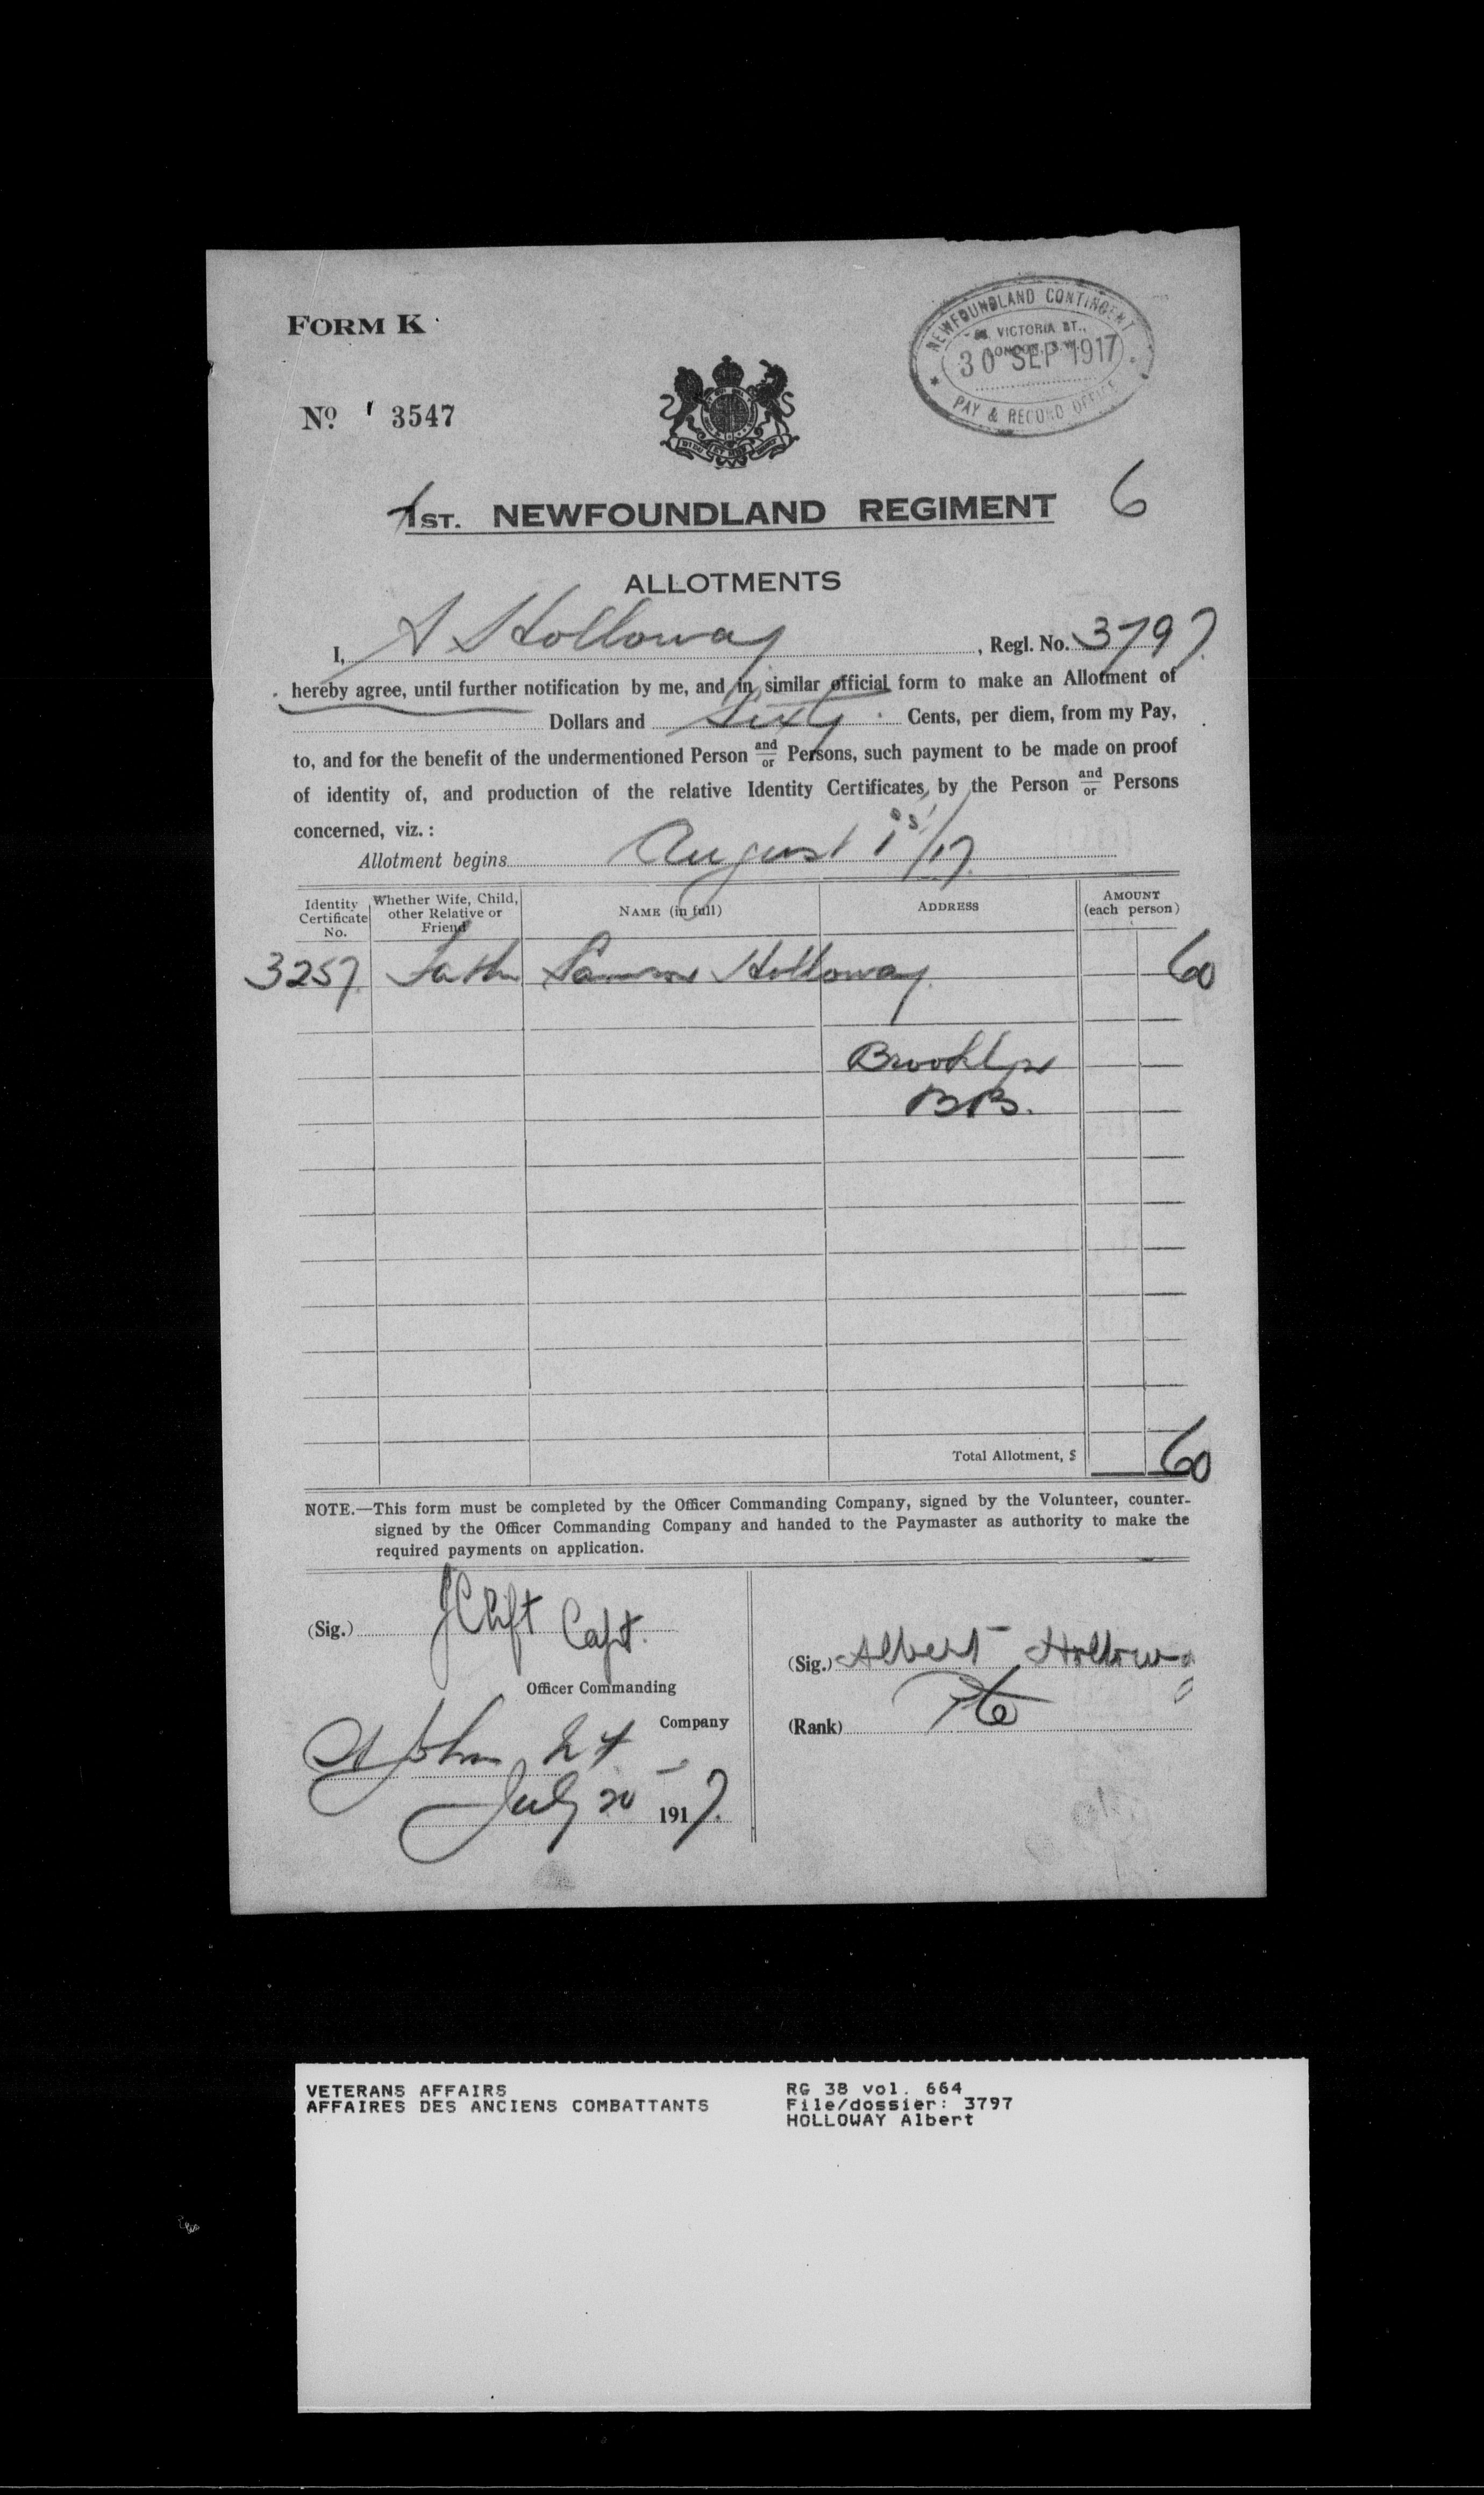 FORM K
NEWFOUNDLAND CONTINGENT
VICTORIA ST.,
LONDON, S.W.
30 SEP 1917
PAY & RECORD OFFICE
No. 3547
1ST. NEWFOUNDLAND REGIMENT 6
ALLOTMENTS
I, A Holloway, Regl. No. 3797
hereby agree, until further notification by me, and in similar official form to make an Allotment of
Dollars and Sixty Cents, per diem, from my Pay,
to, and for the benefit of the undermentioned Person and/or Persons, such payment to be made on proof
of identity of, and production of the relative Identity Certificates, by the Person and/or Persons
concerned, viz.:
Allotment begins August 1st/17
Identity Certificate No.
Whether Wife, Child, other Relative or Friend
NAME (in full)
ADDRESS
AMOUNT (each person)
3257 Fath Holloway 60
Brooklyn
B.B.
Total Allotment, $ 60
NOTE.—This form must be completed by the Officer Commanding Company, signed by the Volunteer, counter-
signed by the Officer Commanding Company and handed to the Paymaster as authority to make the
required payments on application.
(Sig.) J Clift Capt.
Officer Commanding
Company
St John
July 20 1917.
(Sig.) Albert Holloway
(Rank) Pte
VETERANS AFFAIRS
AFFAIRES DES ANCIENS COMBATTANTS
RG 38 vol. 664
File/dossier: 3797
HOLLOWAY Albert